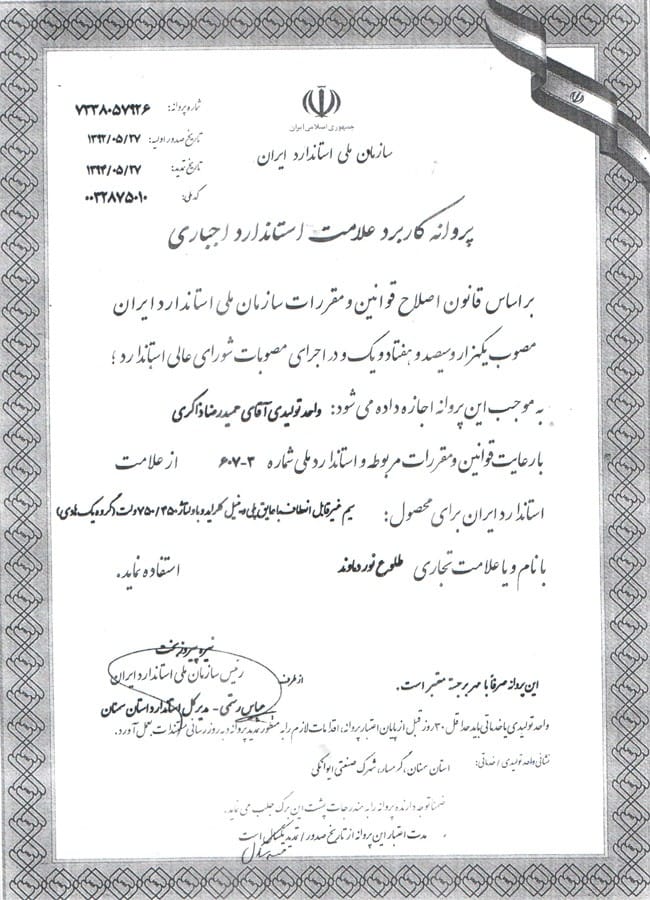 جمهوری اسلامی ایران
سازمان ملی استاندارد ایران
شماره پروانه: ۷۳۳۸۰۵۷۹۲۶
تاریخ صدور اولیه: ۱۳۹۲/۰۵/۲۷
تاریخ تمدید: ۱۳۹۴/۰۵/۲۷
کد ملی: ۰۰۳۲۸۷۵۰۱۰
پروانه کاربرد علامت استاندارد اجباری
بر اساس قانون اصلاح قوانین و مقررات سازمان ملی استاندارد ایران
مصوب یکهزار و سیصد و هفتاد و یک و در اجرای مصوبات شورای عالی استاندارد ؛
به موجب این پروانه اجازه داده می شود: واحد تولیدی آقای حمیدرضا ذاکری
با رعایت قوانین و مقررات مربوطه و استاندارد ملی شماره ۳-۶۰۷ از علامت
استاندارد ایران برای محصول: سیم غیرقابل انعطاف با عایق پلی وینیل کلراید با ولتاژ ۷۵۰/۴۵۰ ولت (گروه یک هادی)
با نام و یا علامت تجاری طلوع نور دماوند استفاده نماید.
نیره پیروزبخت
رئیس سازمان ملی استاندارد ایران
از طرف
عباس رستمی - مدیر کل استاندارد استان سمنان
این پروانه صرفاً با مهر برجسته معتبر است.
واحد تولیدی یا خدماتی باید حداقل ۳۰ روز قبل از پایان اعتبار پروانه، اقدامات لازم را به منظور تمدید پروانه و به روز رسانی مستندات بعمل آورد.
نشانی واحد تولیدی / خدماتی: استان سمنان، گرمسار، شهرک صنعتی ایوانکی
ضمناً توجه دارنده پروانه را به مندرجات پشت این برگ جلب می نماید.
مدت اعتبار این پروانه از تاریخ صدور / تمدید یکسال است